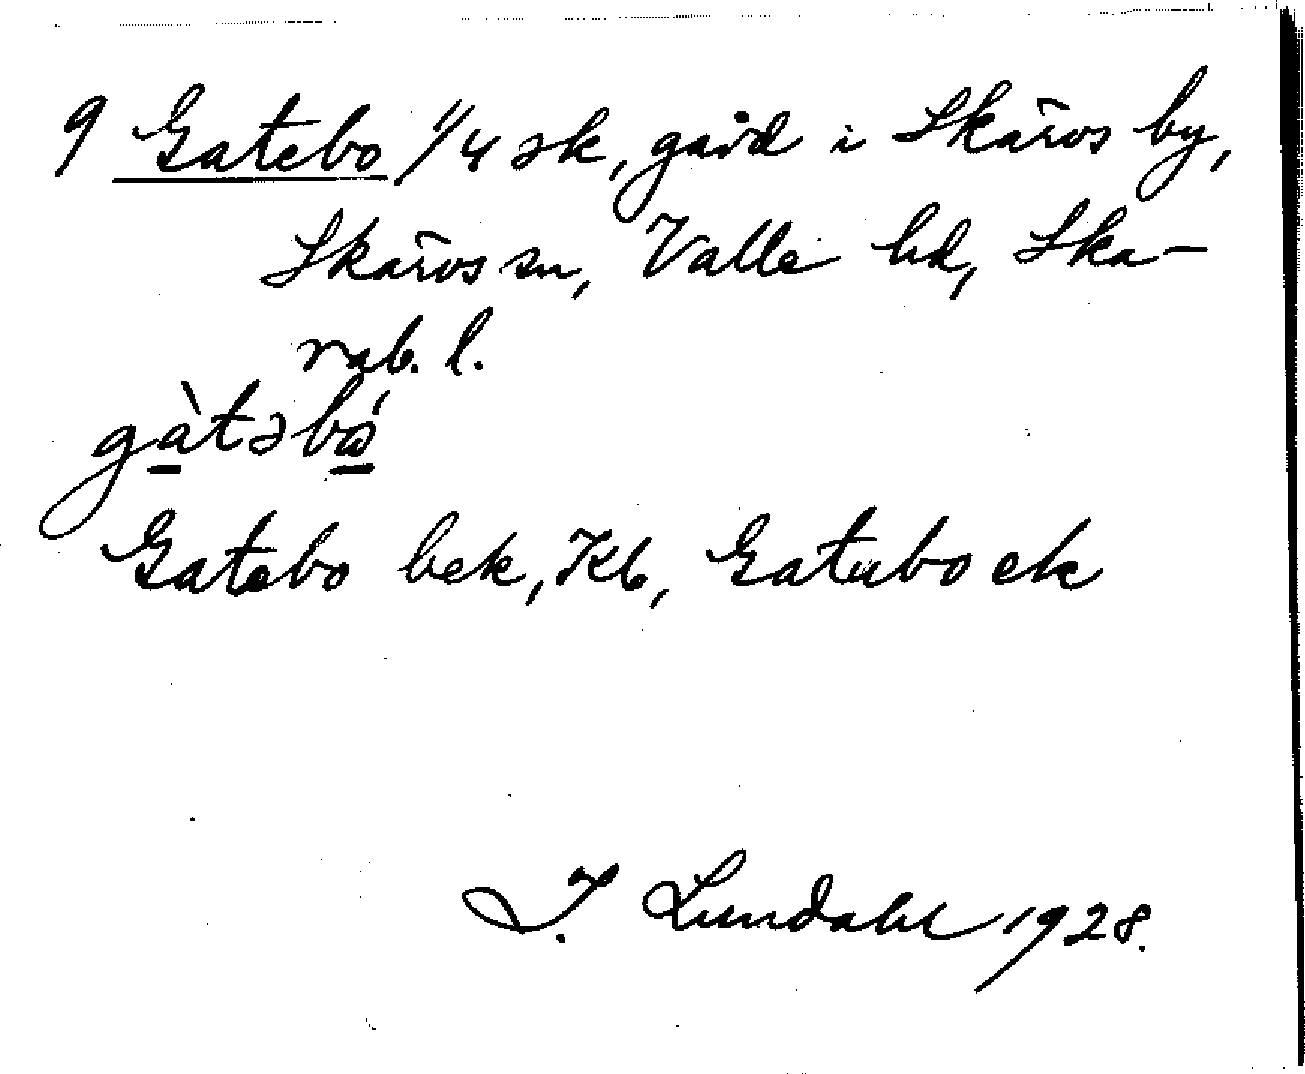 9 Gatebo 1/4 sk, gård i Skärvs by,
Skärvs sn, Valle hd, Ska-
rab. l.
gàtəbó
Gatebo bek, Kb, Gatubo ek
I. Lundahl 1928.